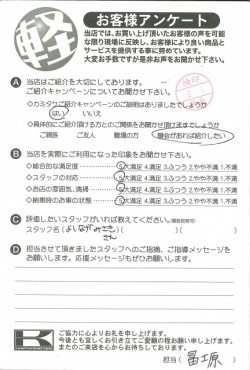 軽
お客様アンケート
当店では、お買い上げ頂いたお客様の声を可能
な限り現場に反映し、お客様により良い商品と
サービスを提供する事に努めています。
大変お手数ですが是非お声をお聞かせ下さい。
A 当店はご紹介を大切にしております。
ご紹介キャンペーンについてお聞かせ下さい。
◇カミタウご紹介キャンペーンのご説明はありましたでしょうか
はい いいえ
◇具体的にご紹介頂ける方とのご関係をお聞かせ頂けますでしょうか
ご親族 ご友人 職場の方 機会があれば紹介したい
B 当店を実際にご利用になった印象をお聞かせ下さい。
◇総合的な満足度 5.大満足 4.満足 3.ふつう 2.やや不満 1.不満
◇スタッフの対応 5.大満足 4.満足 3.ふつう 2.やや不満 1.不満
◇お店の雰囲気、清掃 5.大満足 4.満足 3.ふつう 2.やや不満 1.不満
◇納車時のお車の状態 5.大満足 4.満足 3.ふつう 2.やや不満 1.不満
C 評価したいスタッフがいれば教えてください。(複数回答可)
スタッフ名( よしながみさき さん )( )( )
D 担当させて頂きましたスタッフへのご指摘、ご指導メッセージを
お願いします。応援メッセージもぜひお願いします。
K
ご協力に心よりお礼を申し上げます。
今後とも宜しくお引き立てご愛顧の程お願い申し上げます。
またのご来店を心からお待ちしております。
担当( 冨士原 )